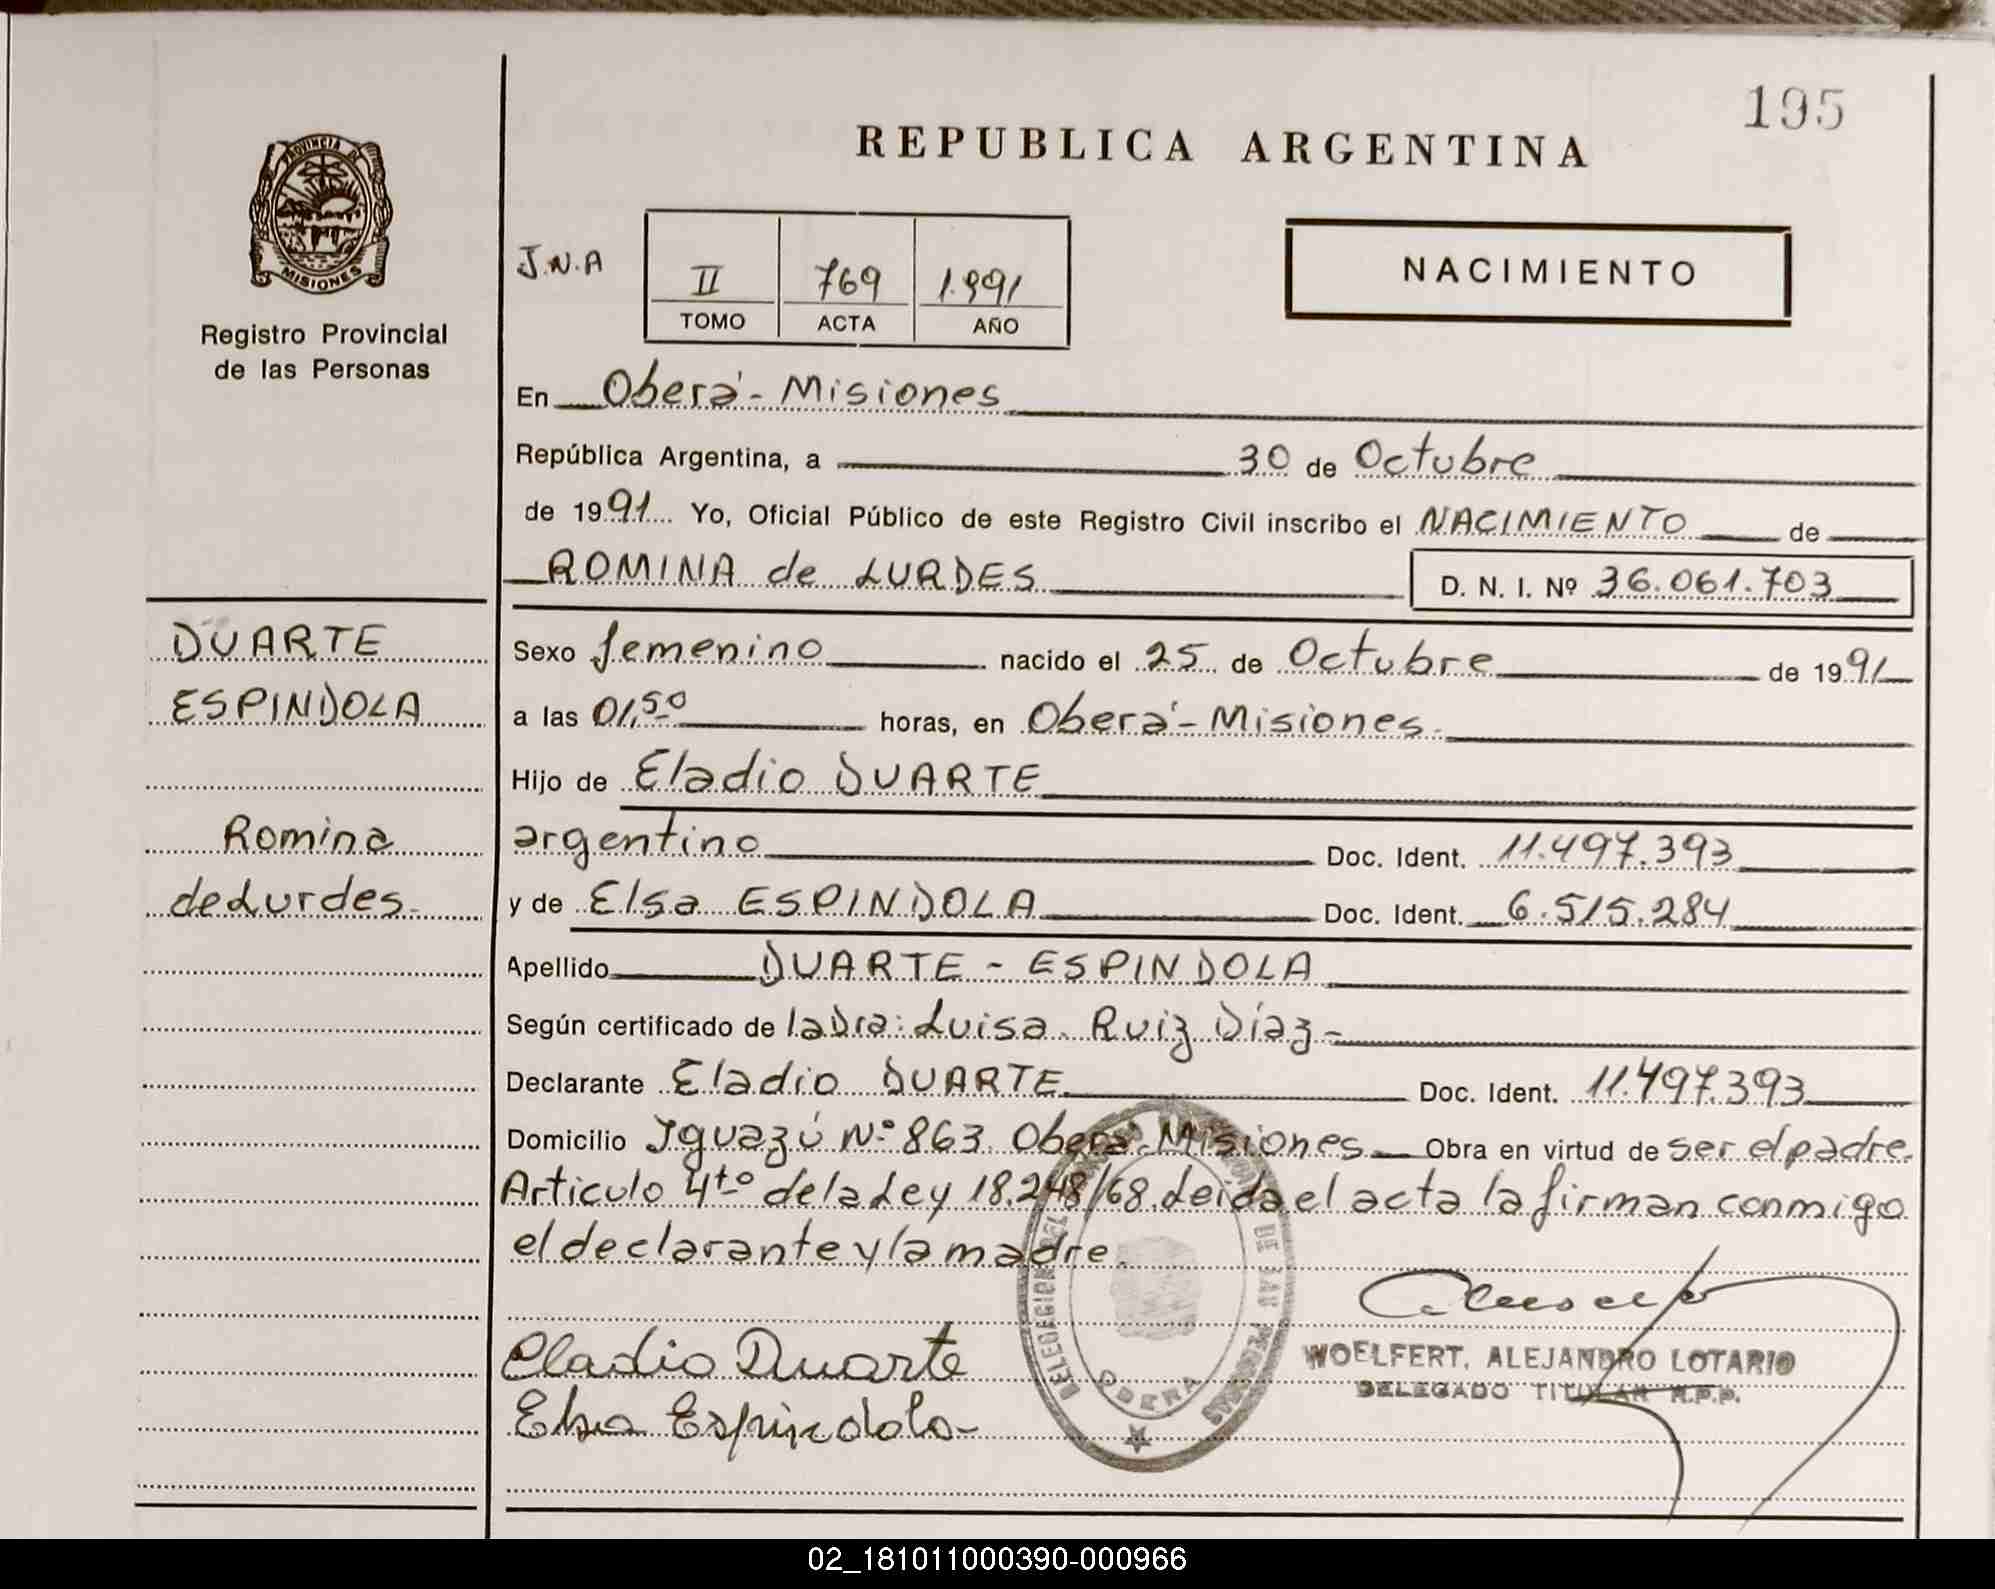 195
REPUBLICA ARGENTINA
PROVINCIA DE
MISIONES
Registro Provincial
de las Personas
J.N.A
II 769 1.991
TOMO ACTA AÑO
NACIMIENTO
En Oberá - Misiones
República Argentina, a 30 de Octubre
de 1991 Yo, Oficial Público de este Registro Civil inscribo el NACIMIENTO de
ROMINA de LURDES D. N. I. Nº 36.061.703
DUARTE
ESPINDOLA
Romina
de Lurdes.
Sexo femenino nacido el 25 de Octubre de 1991
a las 01,50 horas, en Oberá - Misiones.
Hijo de Eladio DUARTE
argentino Doc. Ident. 11.497.393
y de Elsa ESPINDOLA Doc. Ident. 6.515.284
Apellido DUARTE - ESPINDOLA
Según certificado de la Dra: Luisa Ruiz Díaz-
Declarante Eladio DUARTE Doc. Ident. 11.497.393
Domicilio Iguazú Nº 863 Oberá Misiones Obra en virtud de ser el padre.
Articulo 4to de la Ley 18.248/68. Leída el acta la firman conmigo
el declarante y la madre.
Eladio Duarte
Elsa Espindola-
DELEGACION DEL DE LAS PERSONAS
OBERA
WOELFERT, ALEJANDRO LOTARIO
DELEGADO TITULAR R.P.P.
02_181011000390-000966